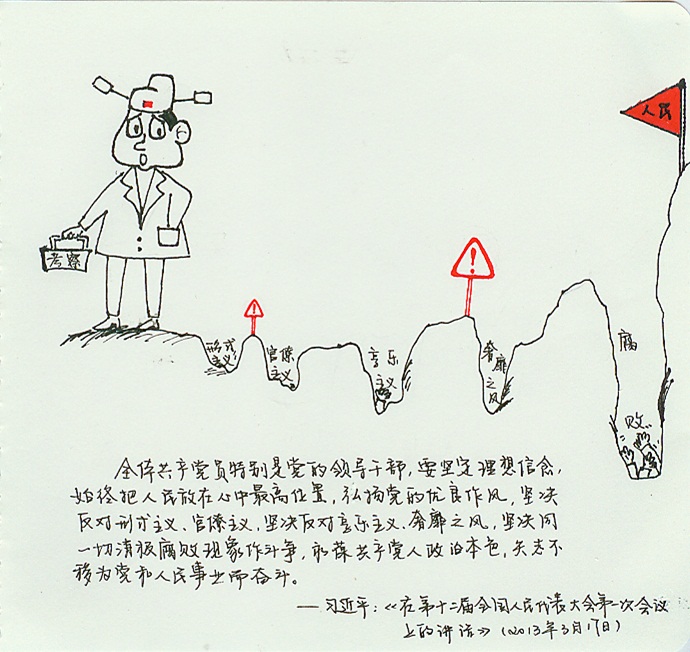 人民
考察
形式
主义
官僚
主义
享乐
主义
奢靡
之风
腐
败
全体共产党员特别是党的领导干部，要坚定理想信念，
始终把人民放在心中最高位置，弘扬党的优良作风，坚决
反对形式主义、官僚主义，坚决反对享乐主义、奢靡之风，坚决同
一切消极腐败现象作斗争，永葆共产党人政治本色，矢志不
移为党和人民事业而奋斗。
——习近平：《在第十二届全国人民代表大会第一次会议
上的讲话》（2013年3月17日）